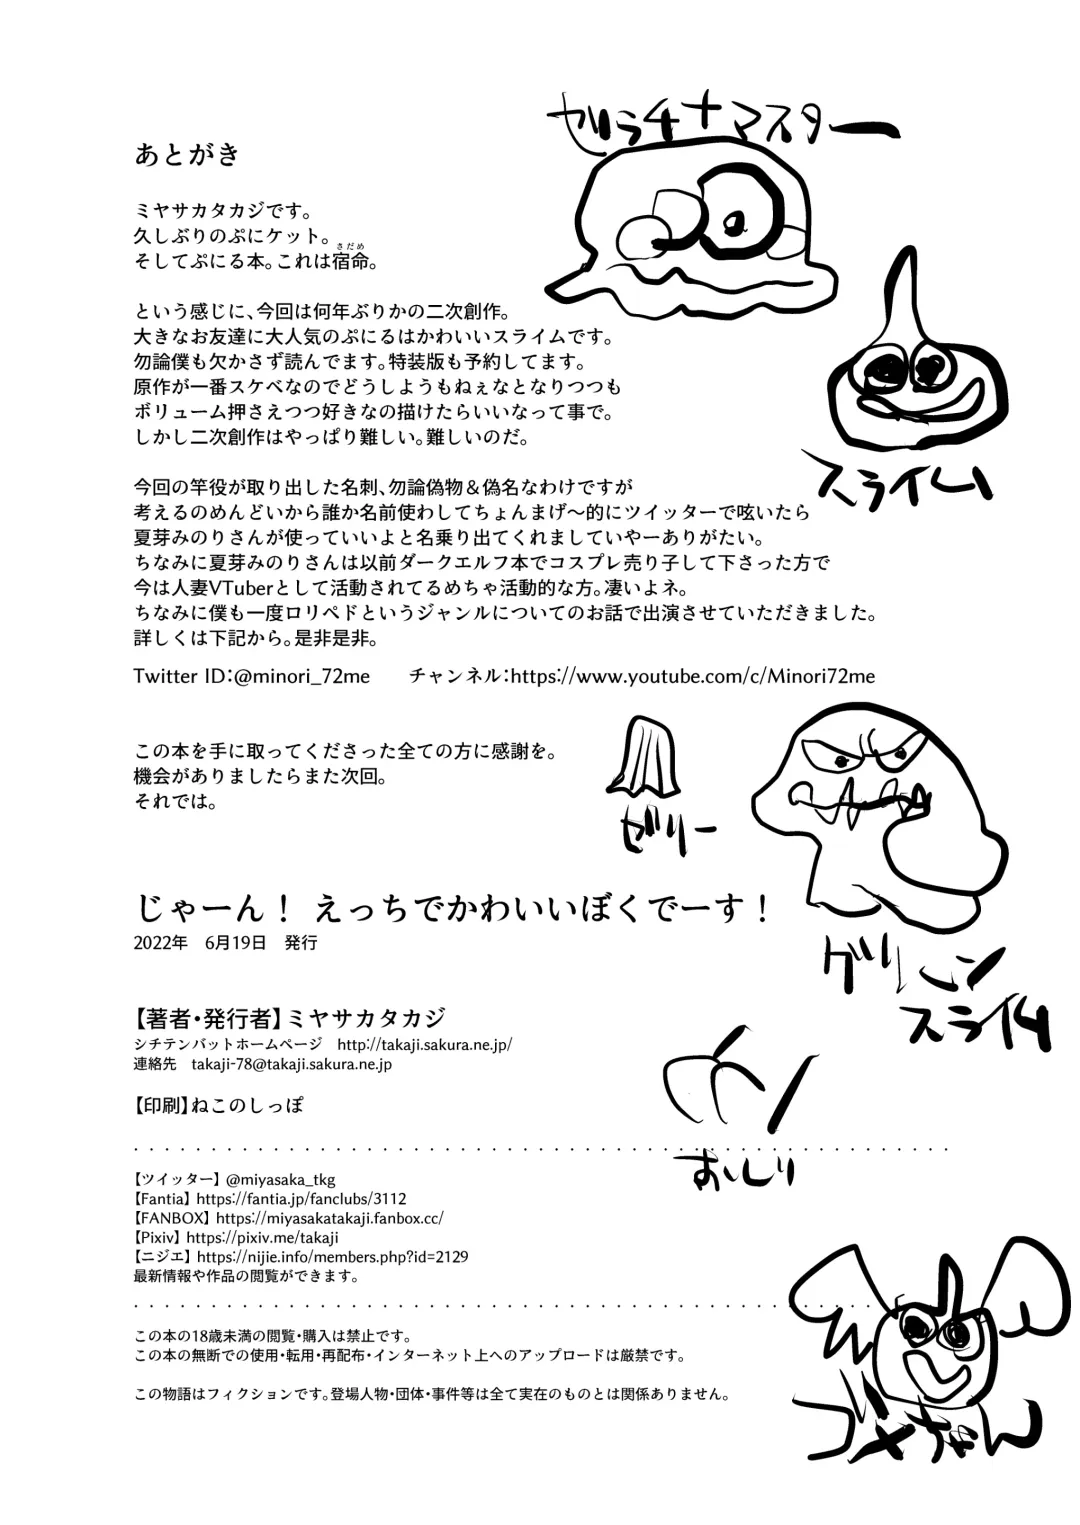 ゼラチナマスター
あとがき
ミヤサカタカジです。
久しぶりのぷにケット。
そしてぷにる本。これは宿命。
さだめ
という感じに、今回は何年ぶりかの二次創作。
大きなお友達に大人気のぷにるはかわいいスライムです。
勿論僕も欠かさず読んでます。特装版も予約してます。
原作が一番スケベなのでどうしようもねぇなとなりつつも
ボリューム押さえつつ好きなの描けたらいいなって事で。
しかし二次創作はやっぱり難しい。難しいのだ。
スライム
今回の竿役が取り出した名刺、勿論偽物＆偽名なわけですが
考えるのめんどいから誰か名前使わしてちょんまげ～的にツイッターで呟いたら
夏芽みのりさんが使っていいよと名乗り出てくれましていやーありがたい。
ちなみに夏芽みのりさんは以前ダークエルフ本でコスプレ売り子して下さった方で
今は人妻VTuberとして活動されてるめちゃ活動的な方。凄いよネ。
ちなみに僕も一度ロリペドというジャンルについてのお話で出演させていただきました。
詳しくは下記から。是非是非。
Twitter ID：@minori_72me　チャンネル：https://www.youtube.com/c/Minori72me
この本を手に取ってくださった全ての方に感謝を。
機会がありましたらまた次回。
それでは。
ゼリー
じゃーん！ えっちでかわいいぼくでーす！
2022年　6月19日　発行
グリーン
スライム
【著者・発行者】ミヤサカタカジ
シチテンバットホームページ　http://takaji.sakura.ne.jp/
連絡先　takaji-78@takaji.sakura.ne.jp
【印刷】ねこのしっぽ
おしり
【ツイッター】 @miyasaka_tkg
【Fantia】 https://fantia.jp/fanclubs/3112
【FANBOX】 https://miyasakatakaji.fanbox.cc/
【Pixiv】 https://pixiv.me/takaji
【ニジエ】 https://nijie.info/members.php?id=2129
最新情報や作品の閲覧ができます。
この本の18歳未満の閲覧・購入は禁止です。
この本の無断での使用・転用・再配布・インターネット上へのアップロードは厳禁です。
この物語はフィクションです。登場人物・団体・事件等は全て実在のものとは関係ありません。
ゴメちゃん